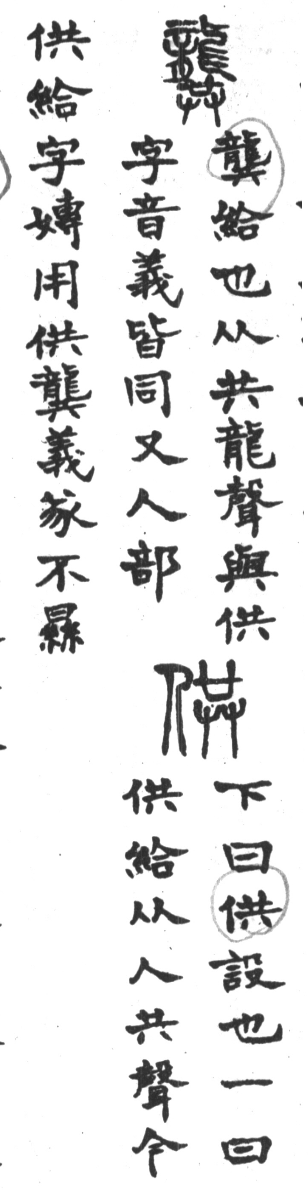 龔
龔給也从共龍聲與供
字音義皆同又人部
供
下曰供設也一曰
供給从人共聲今
供給字嫥用供龔義㒸不㬎